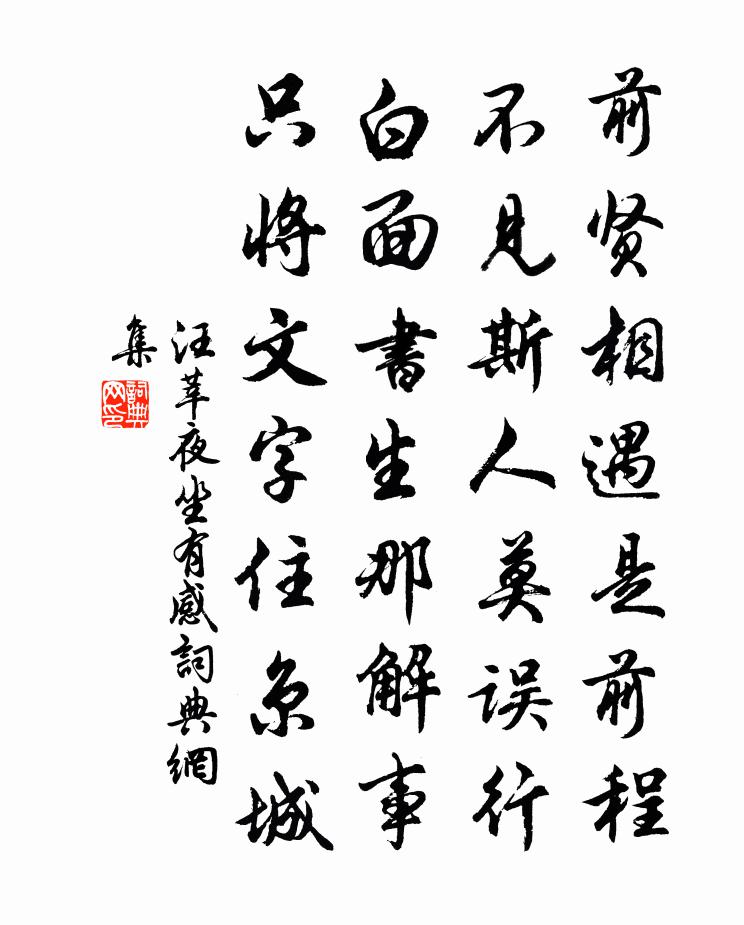 前贤相遇是前程
不见斯人莫误行
白面書生那解事
只将文字住京城
汪莘夜坐有感詞典網
集
詞典
网印